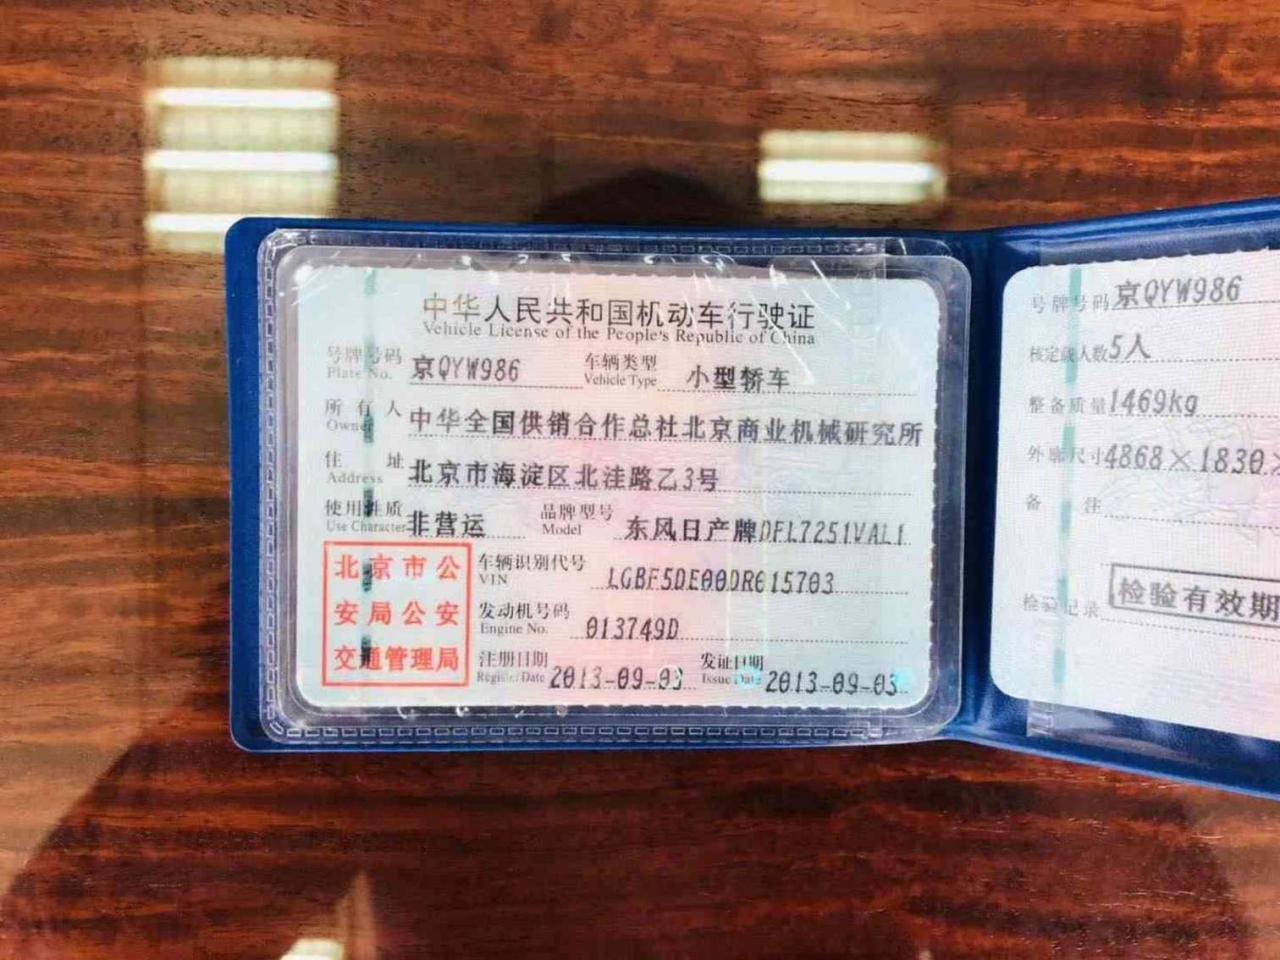 中华人民共和国机动车行驶证
Vehicle License of the People's Republic of China
号牌号码 京QYW986 车辆类型 小型轿车
Plate No. Vehicle Type
所有人 中华全国供销合作总社北京商业机械研究所
Owner
住址 北京市海淀区北洼路乙3号
Address
使用性质 非营运 品牌型号 东风日产牌DFL7251VAL1
Use Character Model
北京市公
安局公安
交通管理局
车辆识别代号 LGBF5DE00DR015703
VIN
发动机号码 013749D
Engine No.
注册日期 2013-09-03 发证日期 2013-09-03
Register Date Issue Date
号牌号码 京QYW986
核定载人数 5人
整备质量 1469kg
外廓尺寸 4868×1830×
备注
检验记录 检验有效期